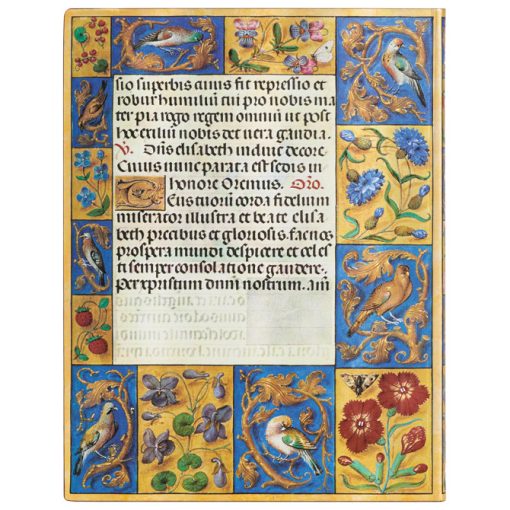 sio superbis cuius fit repressio et
robur humiliū cui pro nobis ma
ter pia rogo regem omniū ut post
hoc exiliū nobis det vera gaudia.
V. Dn̄s elisabeth induit decore.
Cuius nunc parata est sedis in
honore Oremus. Oro.
Deus tuorū corda fidelium
miserator illustra et beate elisa
beth precibus et gloriosis. fac nos
prospera mundi despicere et celes
ti semper consolatione gaudere.
Per xpristum dn̄m nostrum. Am̄